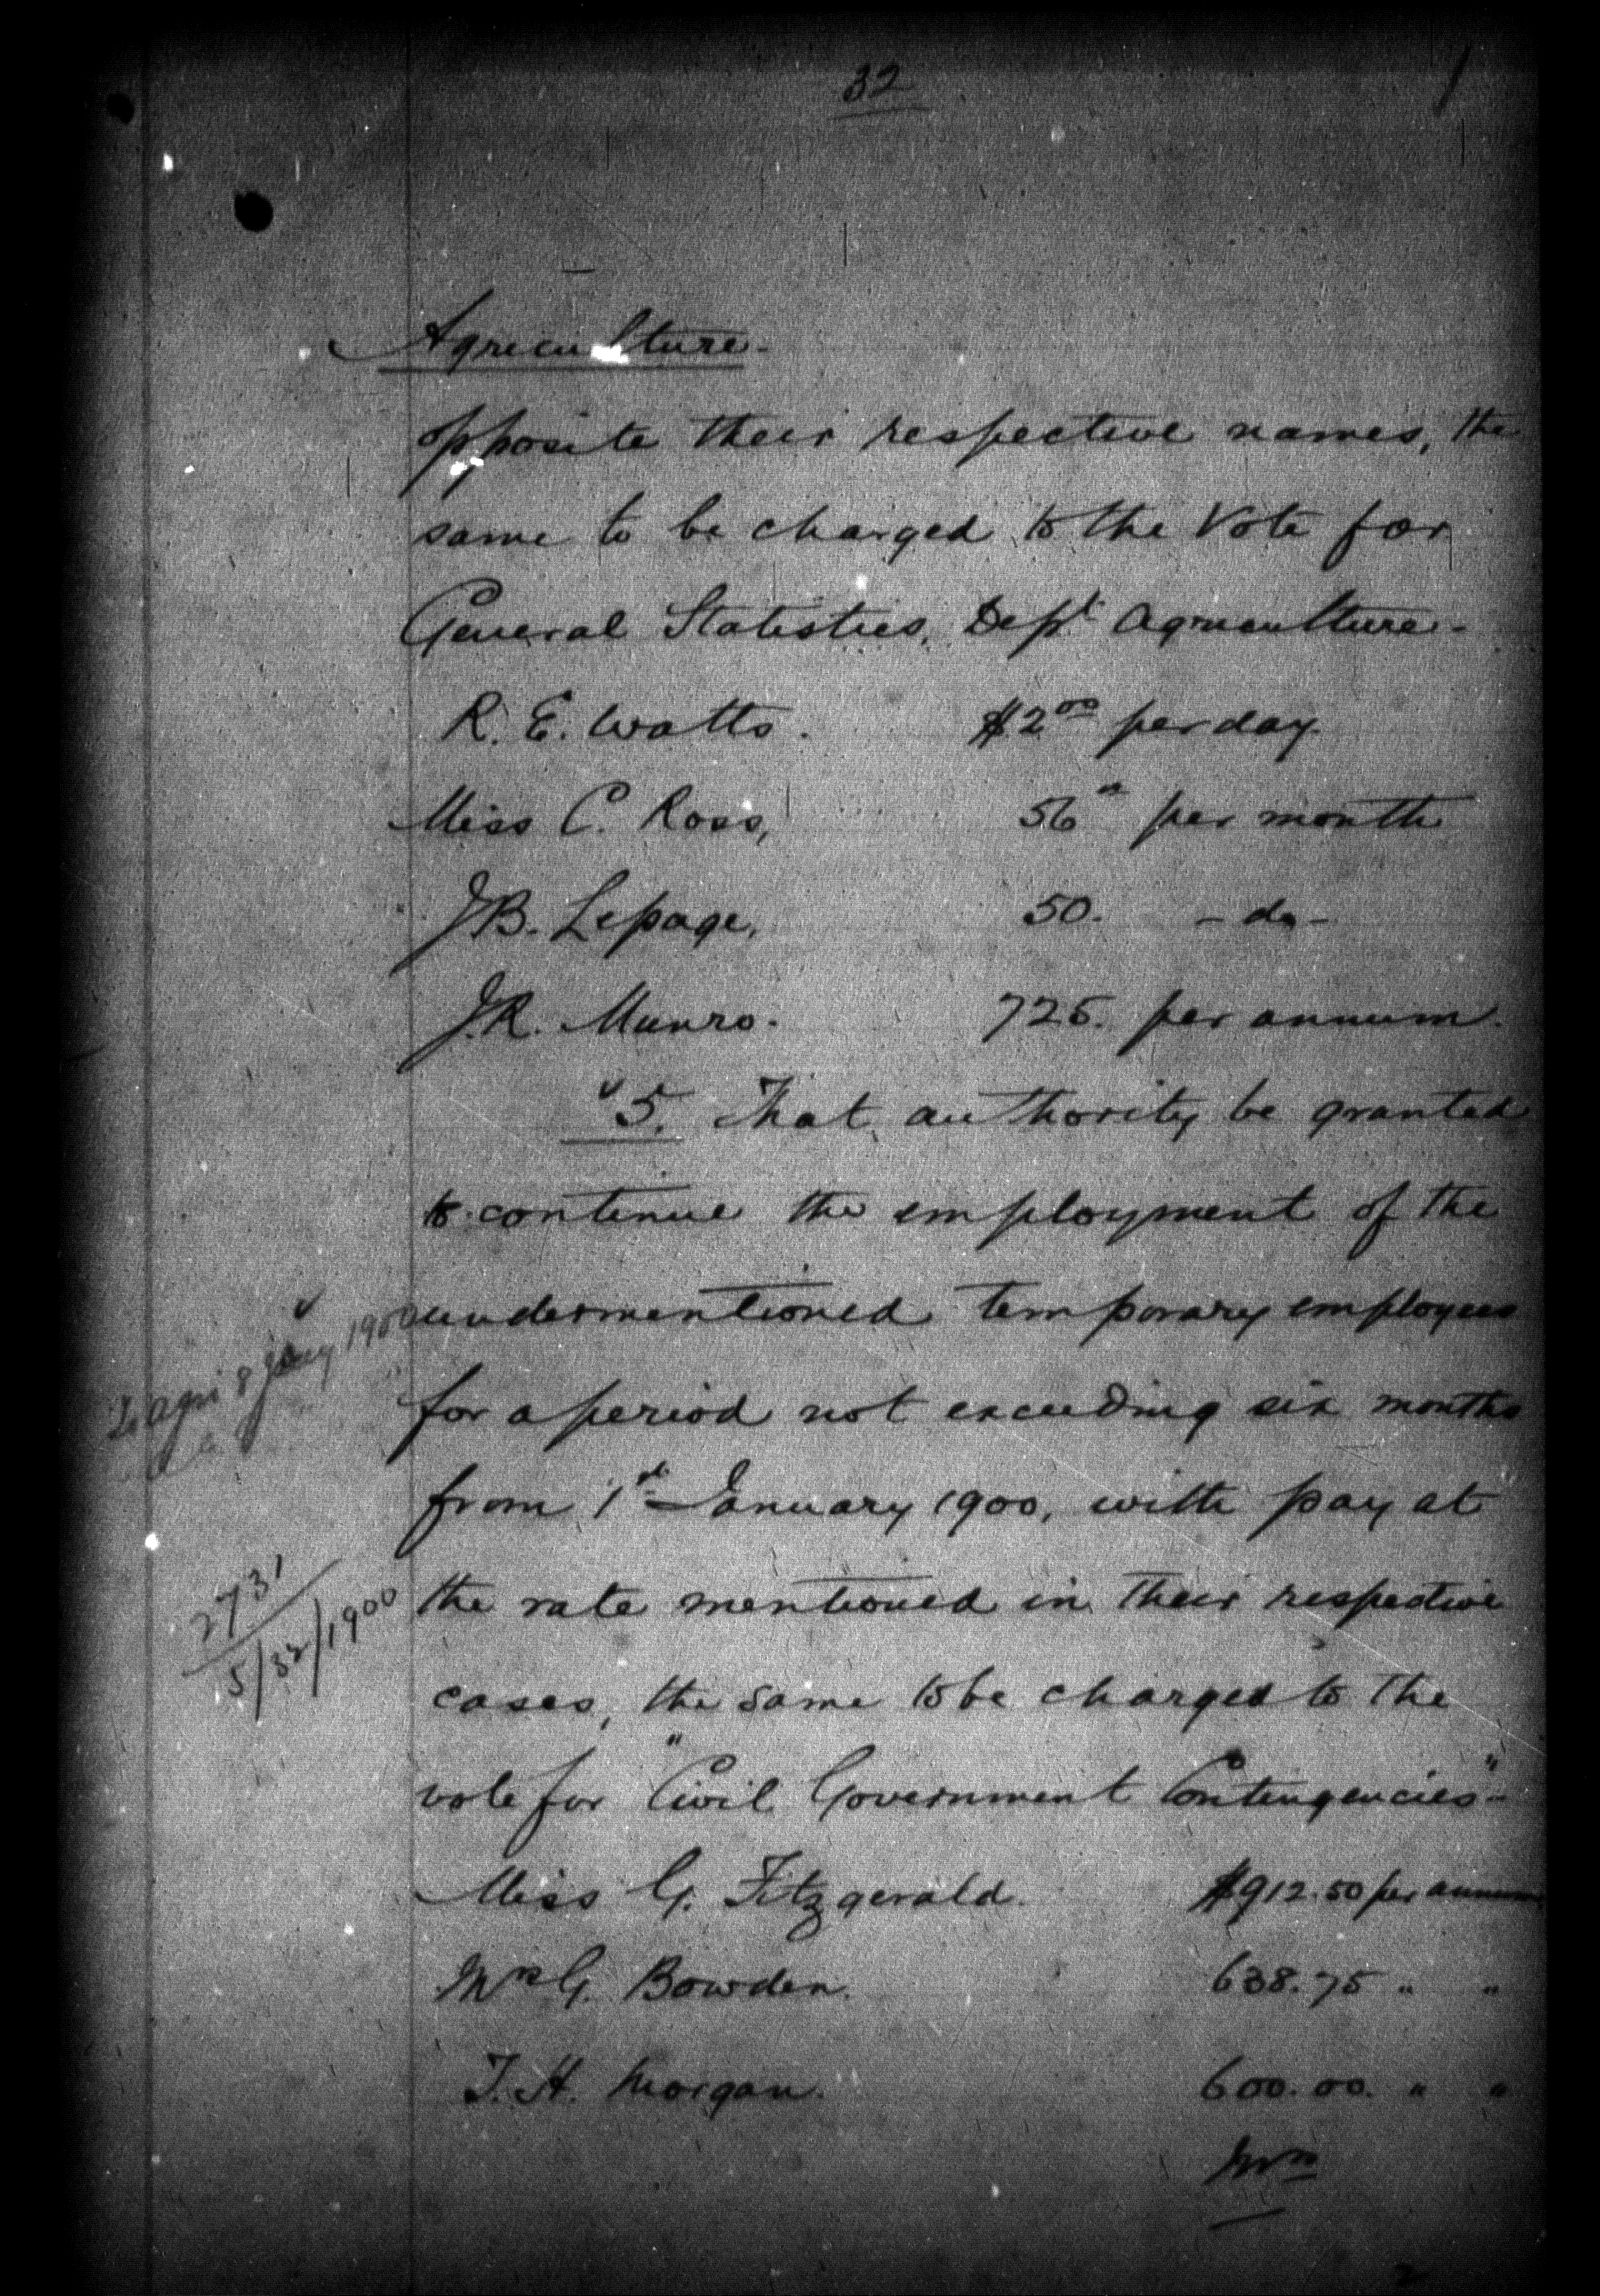 32
Agriculture.
opposite their respective names, the
same to be charged to the Vote for
General Statistics, Dept Agriculture.
R. E. Watts. $2.00 per day.
Miss C. Ross, 56 00 per month
J.B. Lepage, 50. - do -
J.R. Munro. 725. per annum.
5. That authority be granted
to continue the employment of the
undermentioned temporary employees
for a period not exceeding six months
To Agri 8 Jany 1900
from 1st January 1900, with pay at
the rate mentioned in their respective
2731
5/32/1900
cases, the same to be charged to the
vote for "Civil Government Contingencies"-
Miss G. Fitzgerald. $912.50 per annum
Mrs G. Bowden. 638.75 " "
T. H. Morgan. 600.00. " "
Mrs